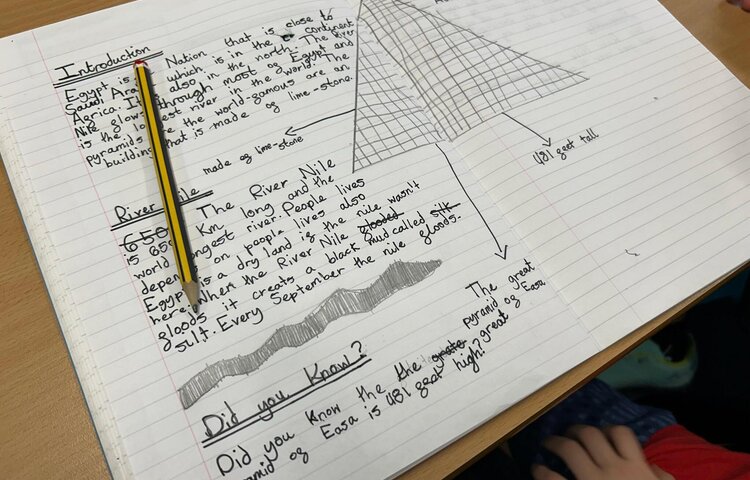 Introduction
Egypt is Nation that is close to
Saudi Ara which is in the continent
Agrica. It also in the north. The River
Nile glow through most og Egypt and
is the lo est river in the world. The
pyramids re the world-gamous are an
building that is made og lime-stone.
made og lime-stone
481 geet tall
River ile
650 The River Nile
is 650 Km long and the
world ongest river. People lives
depen on people lives also
Egypt is a dry land is the nile wasn't
here. When the River Nile glooded
gloods it creats a black mud called silt
silt. Every September the nile gloods.
The great
pyramid og
great og Easa
Did you Know?
Did you know the the greate
ramid og Easa is 481 geet high?